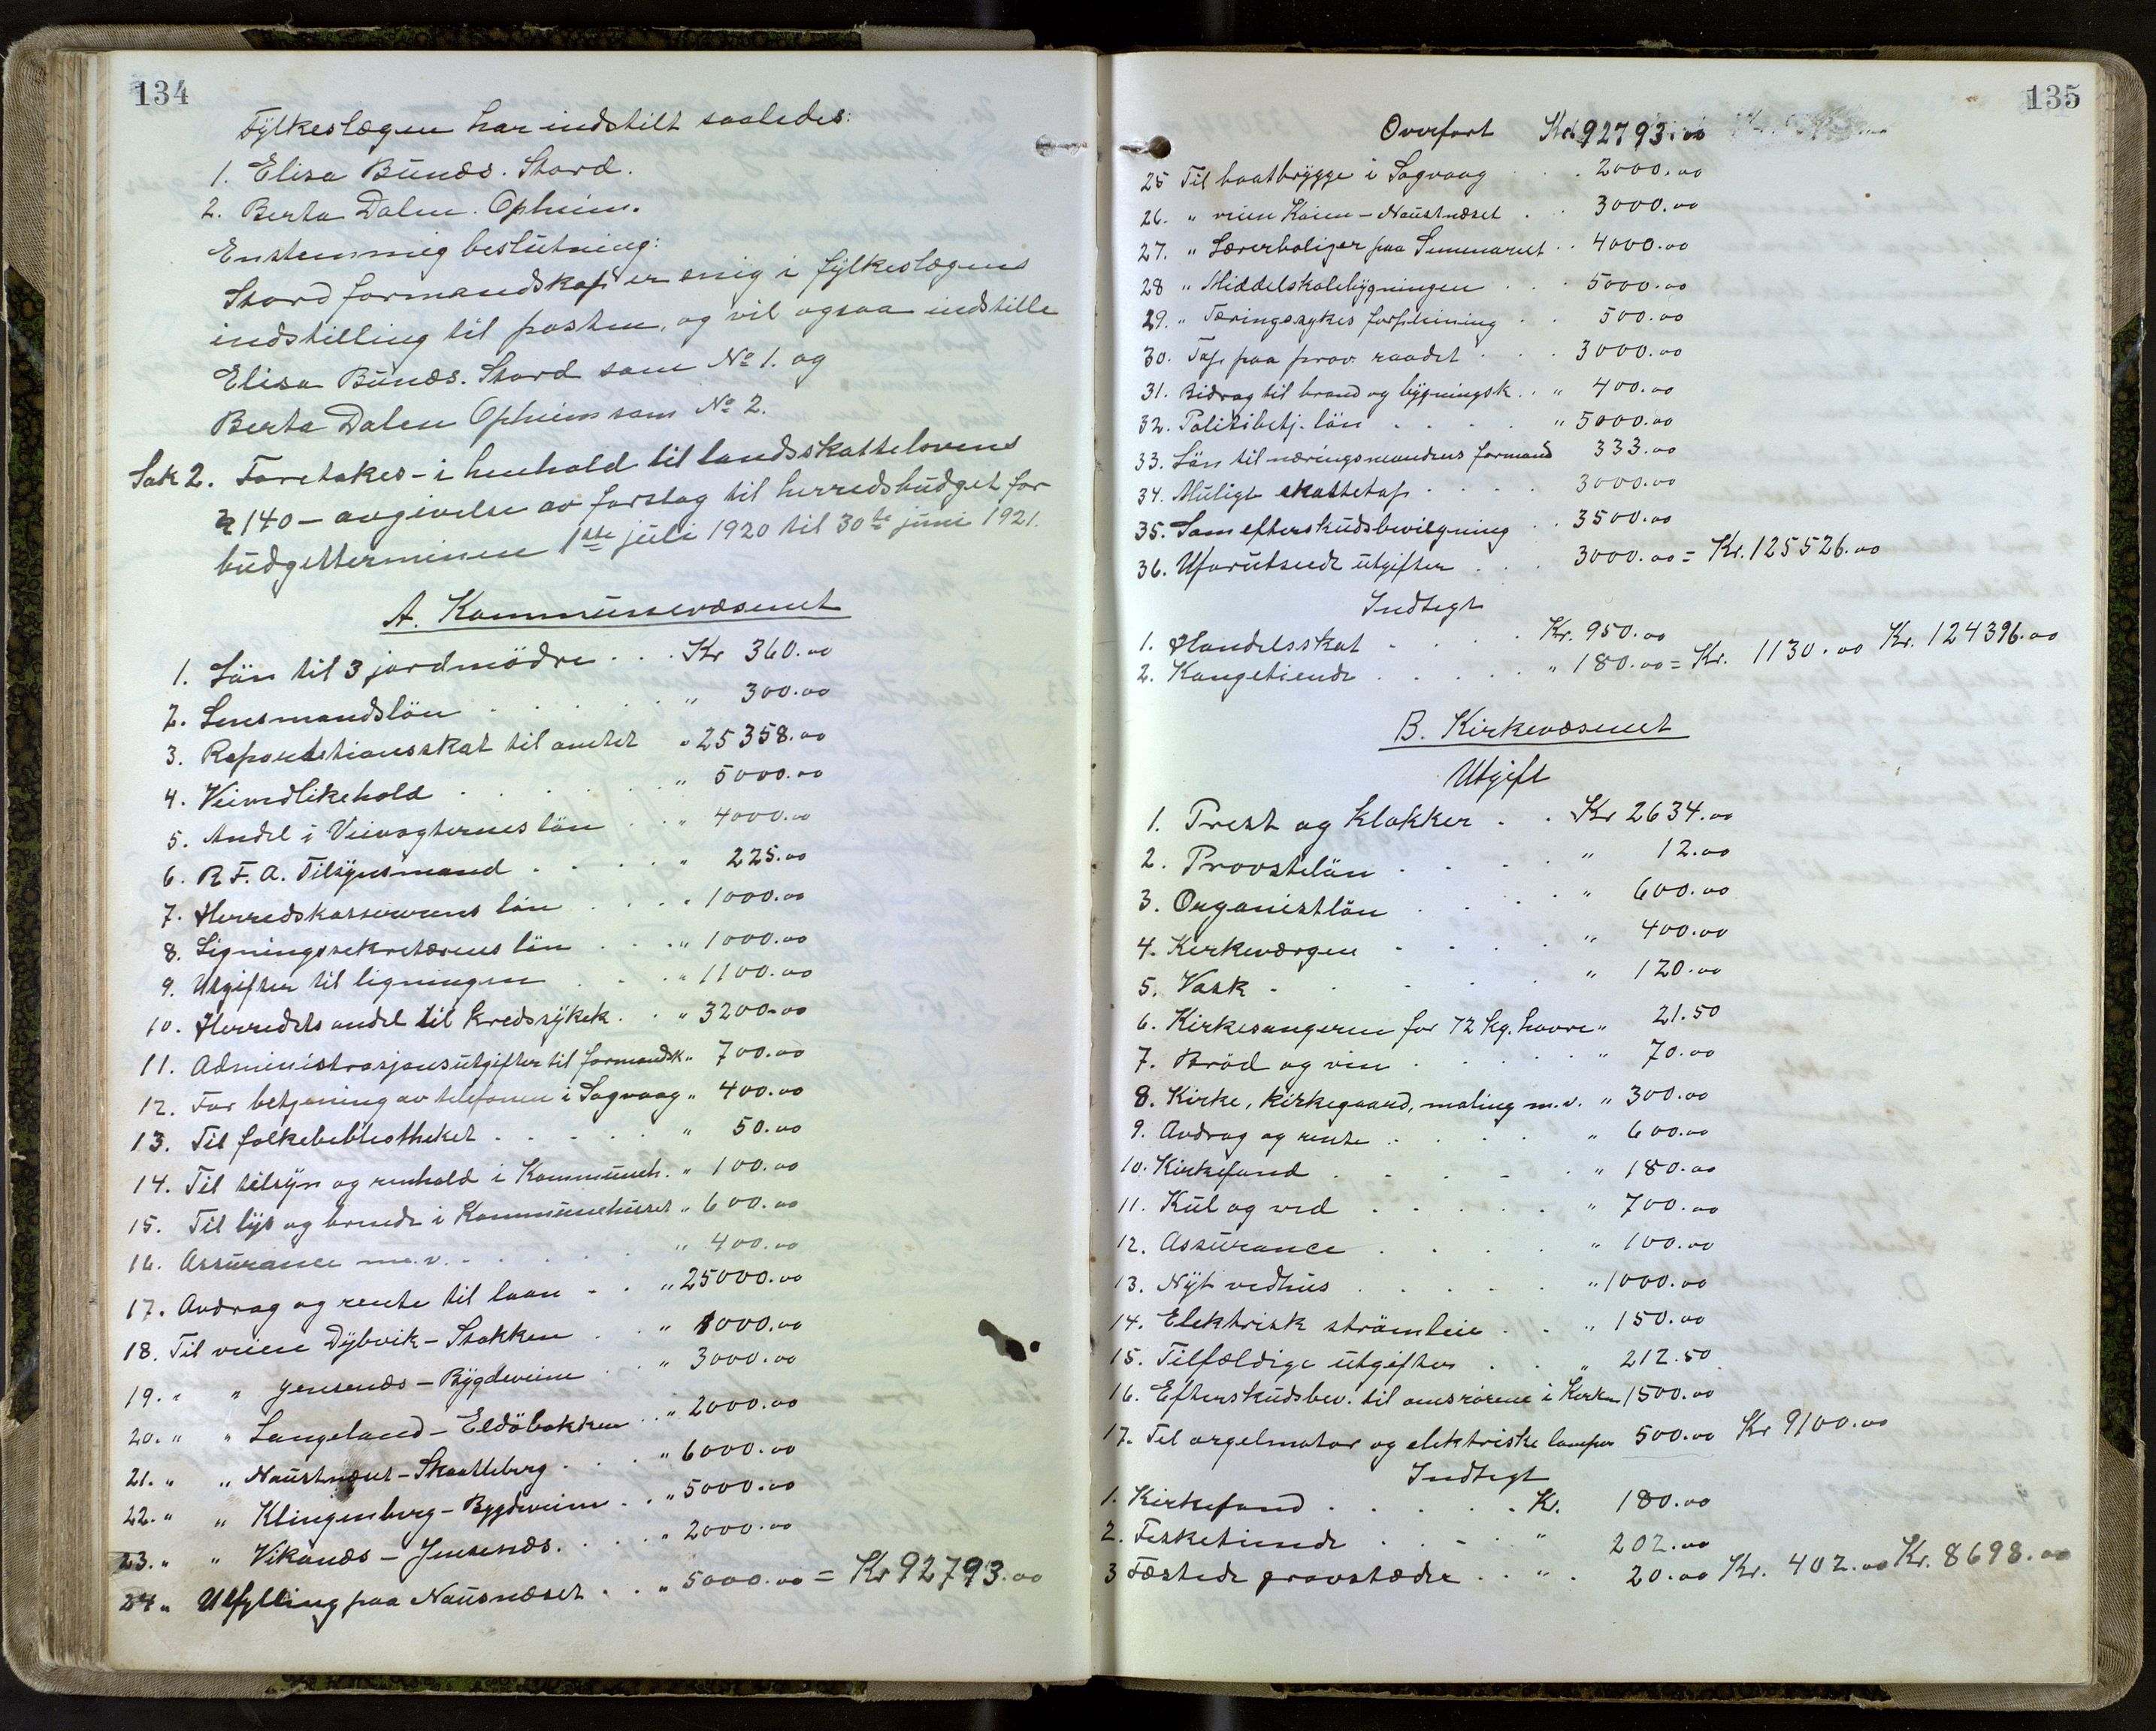 134
Fylkeslægen har indstilt saaledes:
1. Elisa Bünæs. Stord.
2. Berta Dalen. Opheim.
Enstemmig beslütning:
Stord formandskap er enig i fylkeslægens
indstilling til posten, og vil ogsaa indstille
Elisa Bünæs. Stord som No 1. og
Berta Dalen Opheim som No 2.
Sak 2. Foretakes - i henhold til landsskattelovens
§ 140 - avgivelse av forslag til herredsbüdget for
büdgetterminen 1ste jüli 1920 til 30te jüni 1921.
A. Kommünevæsenet
1. Lön til 3 jordmödre . . . Kr 360.00
2. Lensmandslön . . . . . " 300.00
3. Repartitionsskat til amtet " 25358.00
4. Veivedlikehold . . . . . " 5000.00
5. Andel i Veivogternes lön . . " 4000.00
6. R. F. A. Tilsynsmand . . . . " 225.00
7. Herredskassererens lön . . . " 1000.00
8. Ligningssekretærens lön . . . " 1000.00
9. Utgifter til ligningen . . . " 1100.00
10. Herredets andel til kredssykek. . " 3200.00
11. Administrasjonsütgifter til formandsk. " 700.00
12. For betjening av telefonen i Sagvaag " 400.00
13. Til folkebibliotheket . . . . . " 50.00
14. Til tilsyn og renhold i Kommüneh. " 100.00
15. Til lys og brende i Kommünehüset " 600.00
16. Assürance m.v. . . . . . " 400.00
17. Avdrag og rente til laan . . " 25000.00
18. Til veien Dybvik - Stokken . . " 1000.00
19. " " Jensenæs - Bygdeveien . . " 3000.00
20. " " Langeland - Eldöbakken . . " 2000.00
21. " " Naüstnæset - Skaatleberg . . . " 6000.00
22. " " Klingenberg - Bygdeveien . . " 5000.00
23. " " Vikanæs - Jensenæs. . . . " 2000.00
24 " Utfylling paa Naüsnæset . . " 5000.00 = Kr 92793.00
135
Overført Kr. 92793.00
25 Til baatbrygge i Sagvaag . . 2000.00
26. " veien Kaien - Naüstnæset . . 3000.00
27. " Lærerboliger paa Seminaret . . 4000.00
28 " Middelskolebygningen . . . 5000.00
29. " Tæringssykes forpleining . . 500.00
30. Tap paa prov. raadet . . . 3000.00
31. Bidrag til brand og bygningsk. . " 400.00
32. Politibetj. lön . . . . " 5000.00
33. Lön til næringsnemndens formand 333.00
34. Müligt skattetap . . . . 3000.00
35. Som efterskudsbevilgning . . 3500.00
36. Uforütseede ütgifter . . . 3000.00 = Kr. 125526.00
Indtegt
1. Handelsskat . . . . Kr. 950.00
2. Kongetiende . . . . . " 180.00 = Kr. 1130.00 Kr. 124396.00
B. Kirkevæsenet
Utgift
1. Prest og klokker . . Kr 2634.00
2. Provstelön . . . . " 12.00
3. Organistlön . . . . " 600.00
4. Kirkeværgen . . . . " 400.00
5. Vask . . . . . " 120.00
6. Kirkesangeren for 72 kg. havre " 21.50
7. Bröd og vin . . . . . " 70.00
8. Kirke, kirkegaard, maling m.v. " 300.00
9. Avdrag og rente . . . . " 600.00
10. Kirkefond . . . . . " 180.00
11. Kül og ved . . . . . " 700.00
12. Assürance . . . . " 100.00
13. Nyt vedhüs . . . . . " 1000.00
14. Elektrisk strömleie . . " 150.00
15. Tilfældige ütgifter . . " 212.50
16. Efterskudsbev. til omsrörene i Kirken 1500.00
17. Til orgelmotor og elektriske lamper 500.00 Kr 9100.00
Indtegt
1. Kirkefond . . . . . Kr. 180.00
2. Fisketiende . . . . " 202.00
3 Fæstede gravstæder . . " . 20.00 Kr. 402.00 Kr. 8698.00